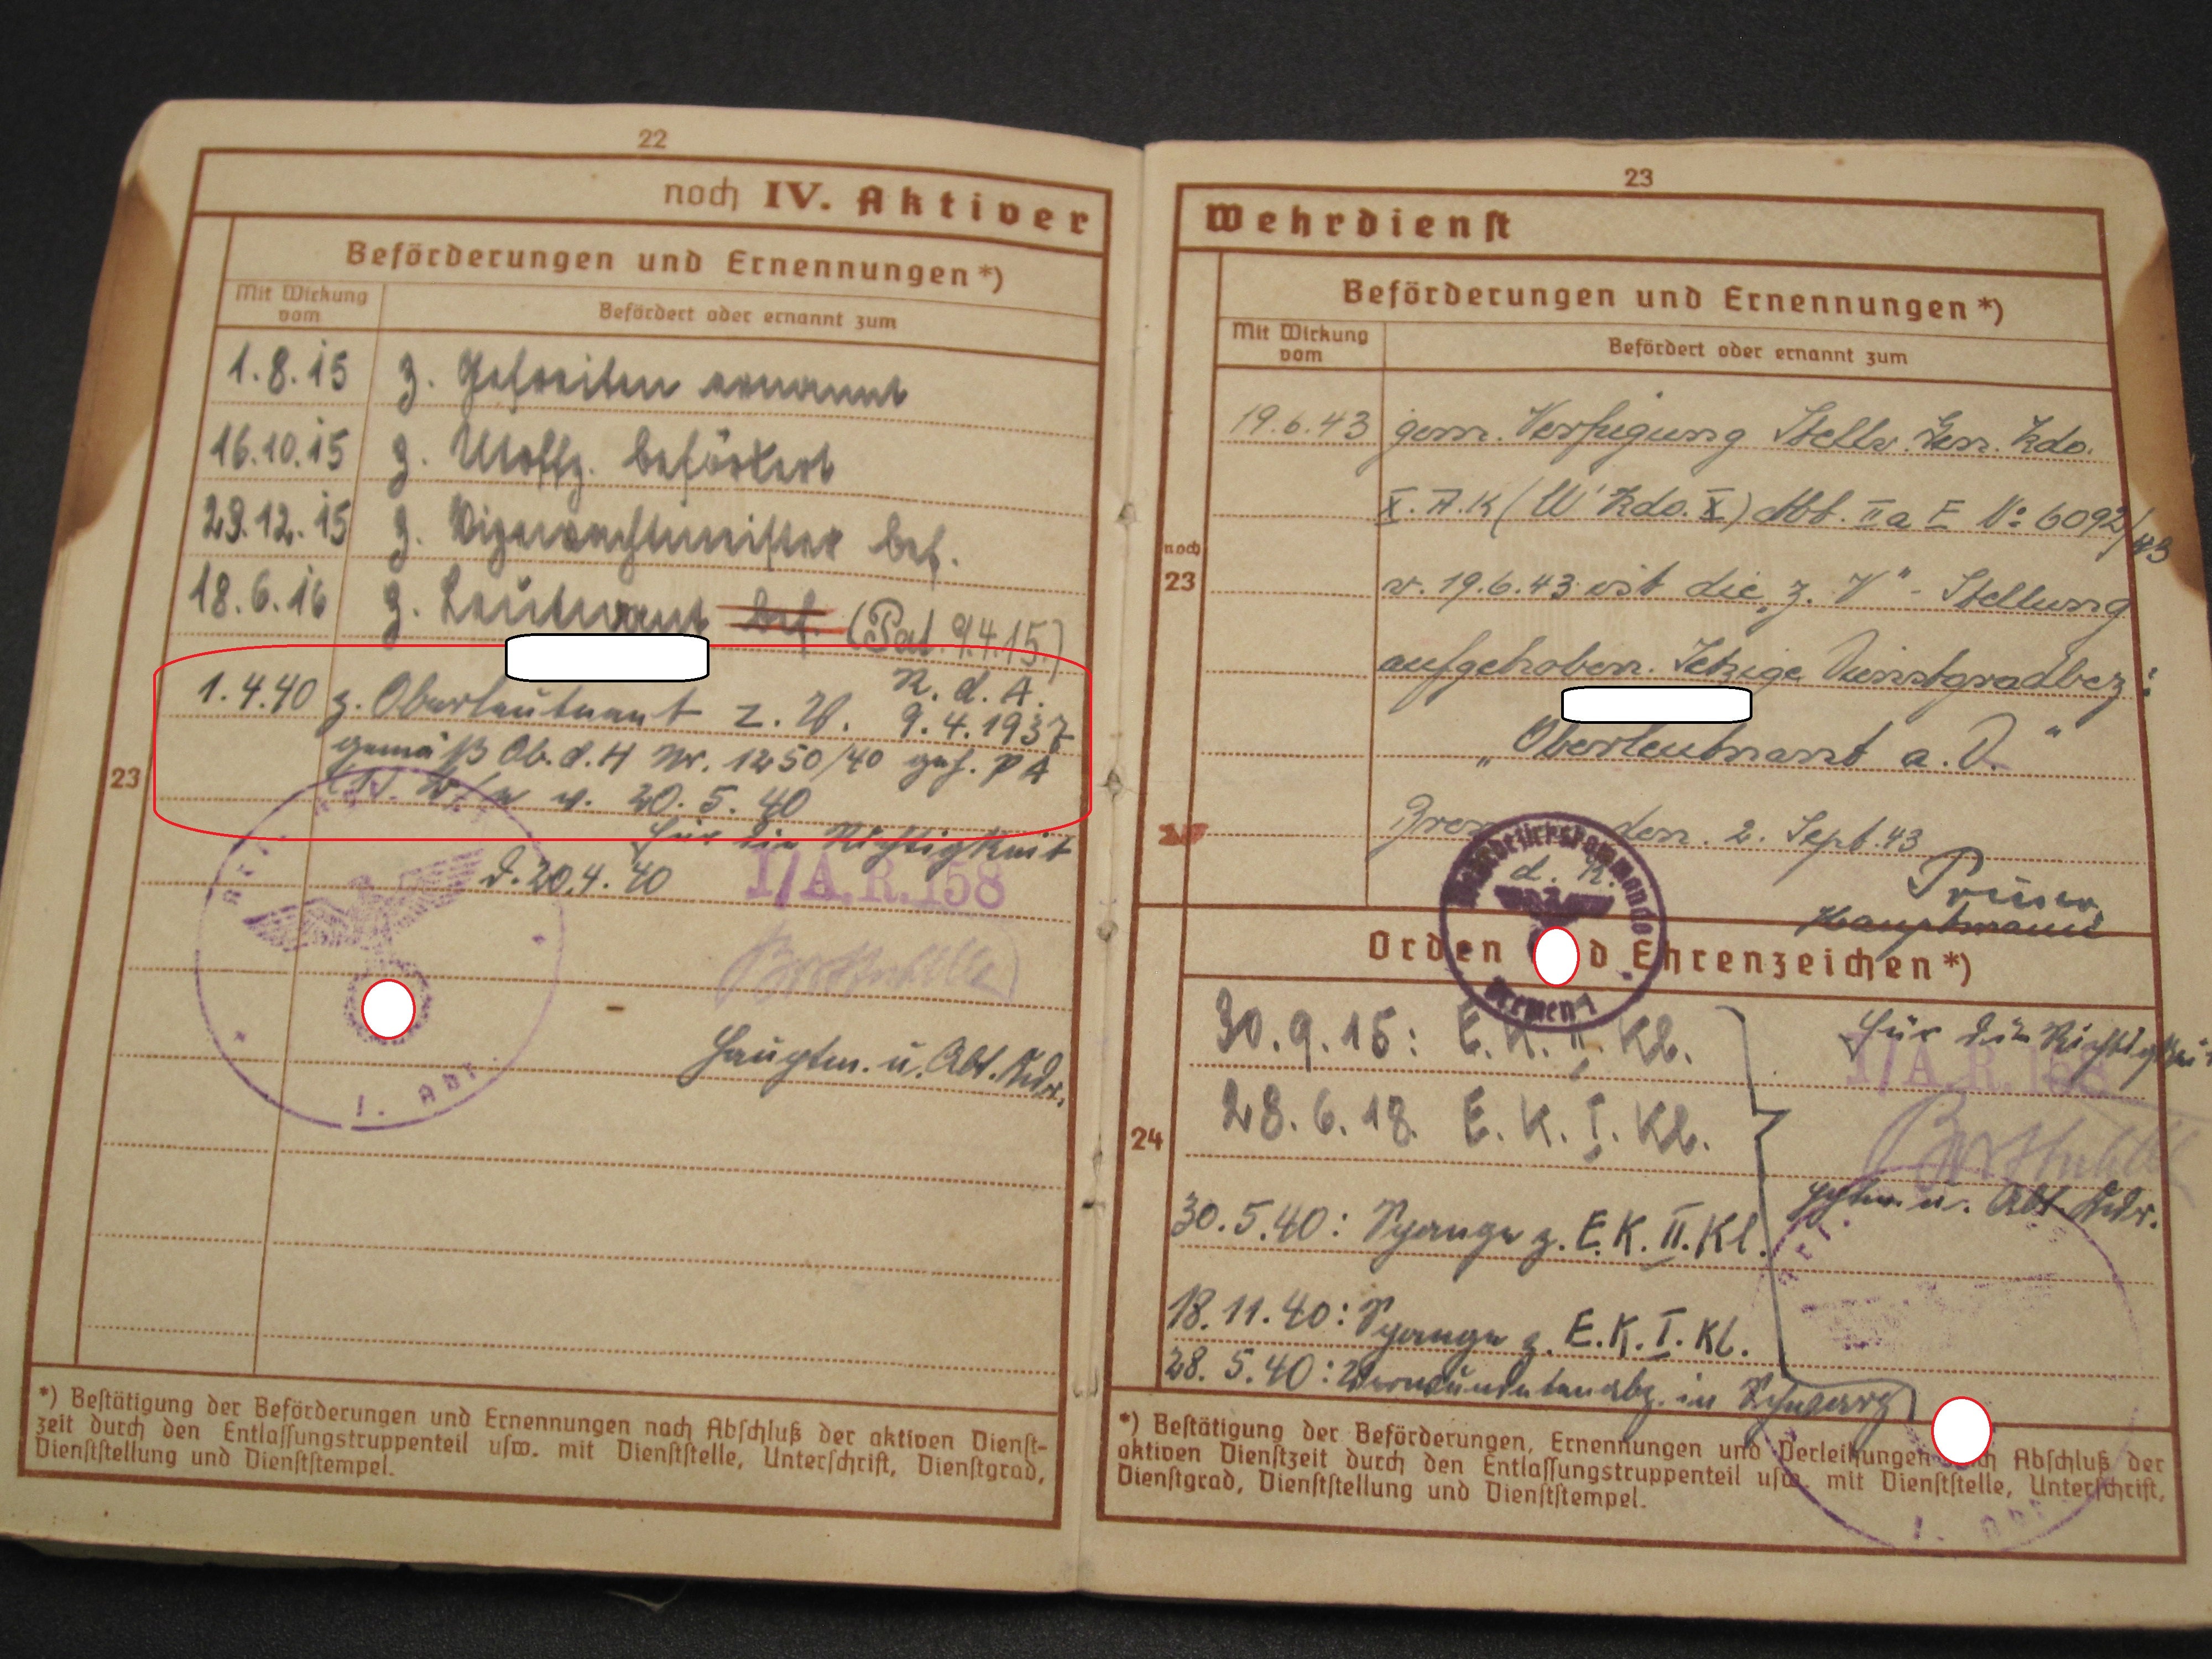 22
noch IV. Aktiver
Beförderungen und Ernennungen *)
Mit Wirkung vom
Befördert oder ernannt zum
1.8.15 z. Gefreiten ernannt
16.10.15 z. Utoffz. befördert
29.12.15 z. Vizewachtmeister bef.
18.6.16 z. Leutnant bef. (Pat. 9.4.15)
R. d. A.
1.4.40 z. Oberleutnant z. V. 9.4.1937
gemäß Ob. d. H Nr. 1250/40 geh. PA
v. 20.5.40
23
für die Richtigkeit
d. 20.4.40
I/A.R.158
Hauptm. u. Abt. Kdr.
I. Abt.
*) Bestätigung der Beförderungen und Ernennungen nach Abschluß der aktiven Dienst-
zeit durch den Entlassungstruppenteil usw. mit Dienststelle, Unterschrift, Dienstgrad,
Dienststellung und Dienststempel.
23
Wehrdienst
Beförderungen und Ernennungen *)
Mit Wirkung vom
Befördert oder ernannt zum
19.6.43 gem. Verfügung Stellv. Gen. Kdo.
X. A.K (W' Kdo. X) Abt. II a E No 6092/43
noch
23
v. 19.6.43 ist die „z. V" - Stellung
aufgehoben. Jetzige Dienstgradbez:
„Oberleutnant a. D."
den 2. Sept. 43
d. R.
Wehrbezirkskommando
Bremen I
Hauptmann
Orden d Ehrenzeichen *)
30.9.15: E.K. II. Kl.
für die Richtigkeit
I/A.R.158
28.6.18. E.K. I. Kl.
24
Hptm. u. Abt. Kdr.
30.5.40: Spange z. E.K. II. Kl.
18.11.40: Spange z. E.K. I. Kl.
28.5.40: Verwundetenabz. in Schwarz
*) Bestätigung der Beförderungen, Ernennungen und Verleihungen nach Abschluß der
aktiven Dienstzeit durch den Entlassungstruppenteil usw. mit Dienststelle, Unterschrift,
Dienstgrad, Dienststellung und Dienststempel.